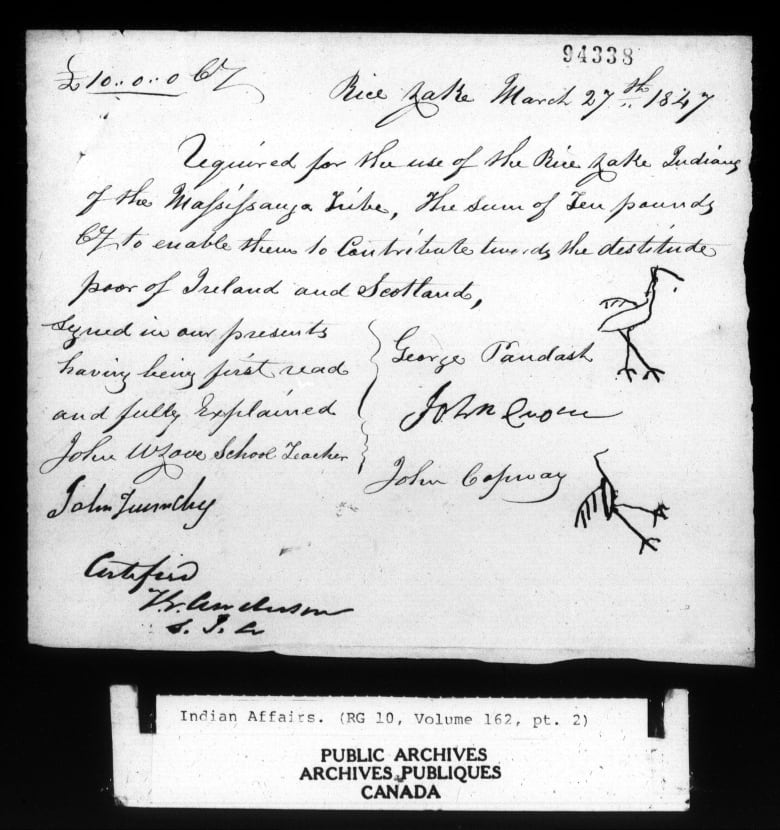 94338
£10..0..0 Cy
Rice Lake March 27th 1847
Required for the use of the Rice Lake Indians
of the Massissauga Tribe, The sum of Ten pounds
Cy to enable them to Contribute towards the destitude
poor of Ireland and Scotland,
Signed in our presents
having being first read
and fully Explained
John
School Teacher
John
George Paudash
John Crow
John Copway
Certified
T.G. Anderson
S. I. A
Indian Affairs. (RG 10, Volume 162, pt. 2)
PUBLIC ARCHIVES
ARCHIVES PUBLIQUES
CANADA